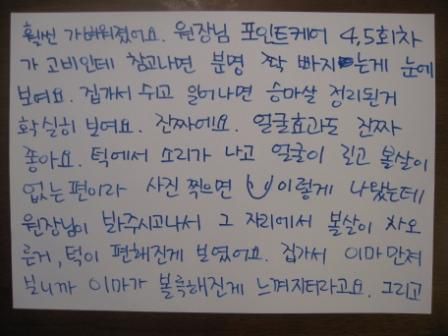 훨씬 가벼워졌어요. 원장님 포인트케어 4,5회차
가 고비인데 참고나면 분명 쫙 빠지는게 눈에
보여요. 집가서 쉬고 일어나면 승마살 정리된거
확실히 보여요. 진짜에요. 얼굴효과도 진짜
좋아요. 턱에서 소리가 나고 얼굴이 길고 볼살이
없는 편이라 사진 찍으면 이렇게 나왔는데
원장님이 봐주시고나서 그 자리에서 볼살이 차오
른거, 턱이 편해진게 보였어요. 집가서 이마 만져
보니까 이마가 볼록해진게 느껴지더라고요. 그리고